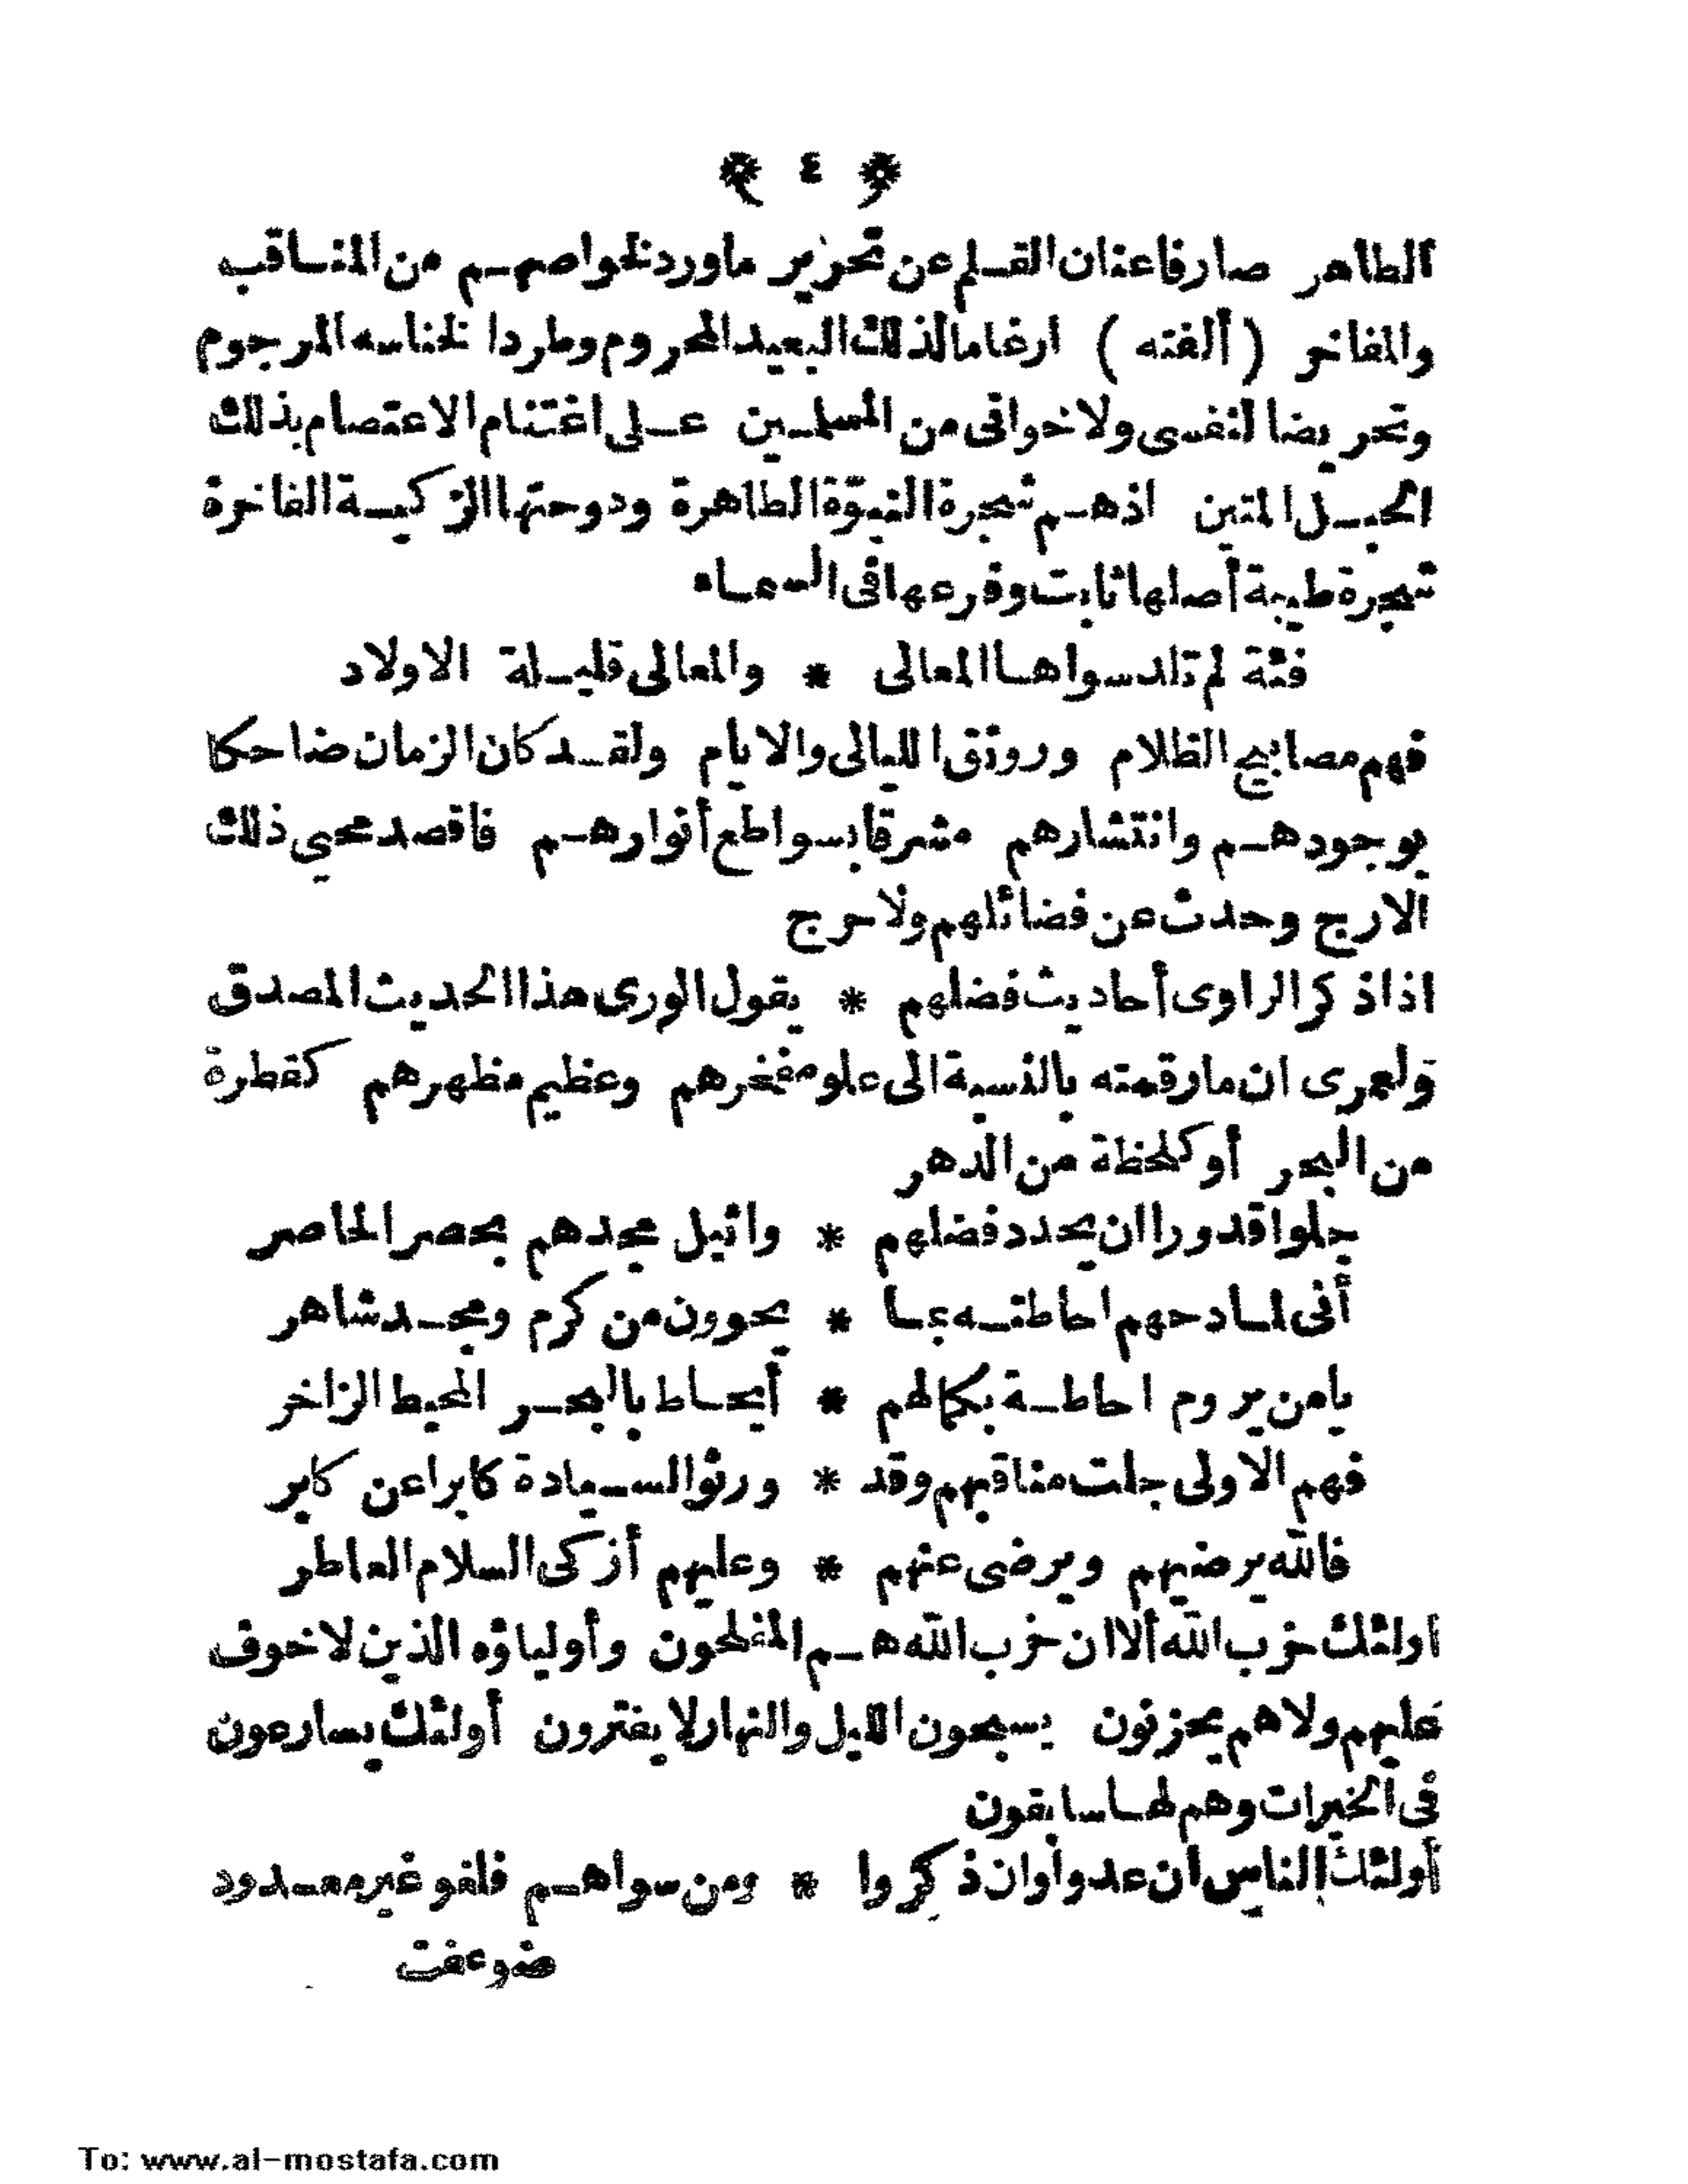 ﴿ ٤ ﴾
الطاهر صارفا عنان القلم عن تحرير ما ورد لخواصهم من المناقب
والمفاخر (ألفته) ارغاما لذلك البعيد المحروم وطردا لخناسه المرجوم
وتحريضا لنفسى ولاخوانى من المسلمين على اغتنام الاعتصام بذلك
الحبل المتين اذهم شجرة النبوّة الطاهرة ودوحتها الزكية الفاخرة
شجرة طيبة أصلها ثابت وفرعها فى السماء
فئة لم تلد سواها المعالى * والمعالى قليلة الاولاد
فهم مصابيح الظلام ورونق الليالى والايام ولقد كان الزمان ضاحكا
بوجودهم وانتشارهم مشرقا بسواطع أنوارهم فاقصد محيى ذلك
الارج وحدث عن فضائلهم ولا حرج
اذا ذكر الراوى أحاديث فضلهم * يقول الورى هذا الحديث المصدق
ولعمرى ان ما رقمته بالنسبة الى علو مفخرهم وعظيم مظهرهم كقطرة
من البحر أو كلحظة من الدهر
جلوا قدورا ان يحدد فضلهم * واثيل مجدهم بحصر الحاصر
أنى لمادحهم احاطته بما * يحوون من كرم ومجد شاهر
يامن يروم احاطة بكمالهم * أيحاط بالبحر المحيط الزاخر
فهم الاولى جلت مناقبهم وقد * ورثوا السيادة كابرا عن كابر
فالله يرضيهم ويرضى عنهم * وعليهم أزكى السلام العاطر
اولئك حزب الله ألا ان حزب الله هم المفلحون وأولياؤه الذين لا خوف
عليهم ولاهم يحزنون يسبحون الليل والنهار لا يفترون أولئك يسارعون
فى الخيرات وهم لها سابقون
أولئك الناس ان عدوا وان ذكروا * ومن سواهم فلغو غير معدود
To: www.al-mostafa.com